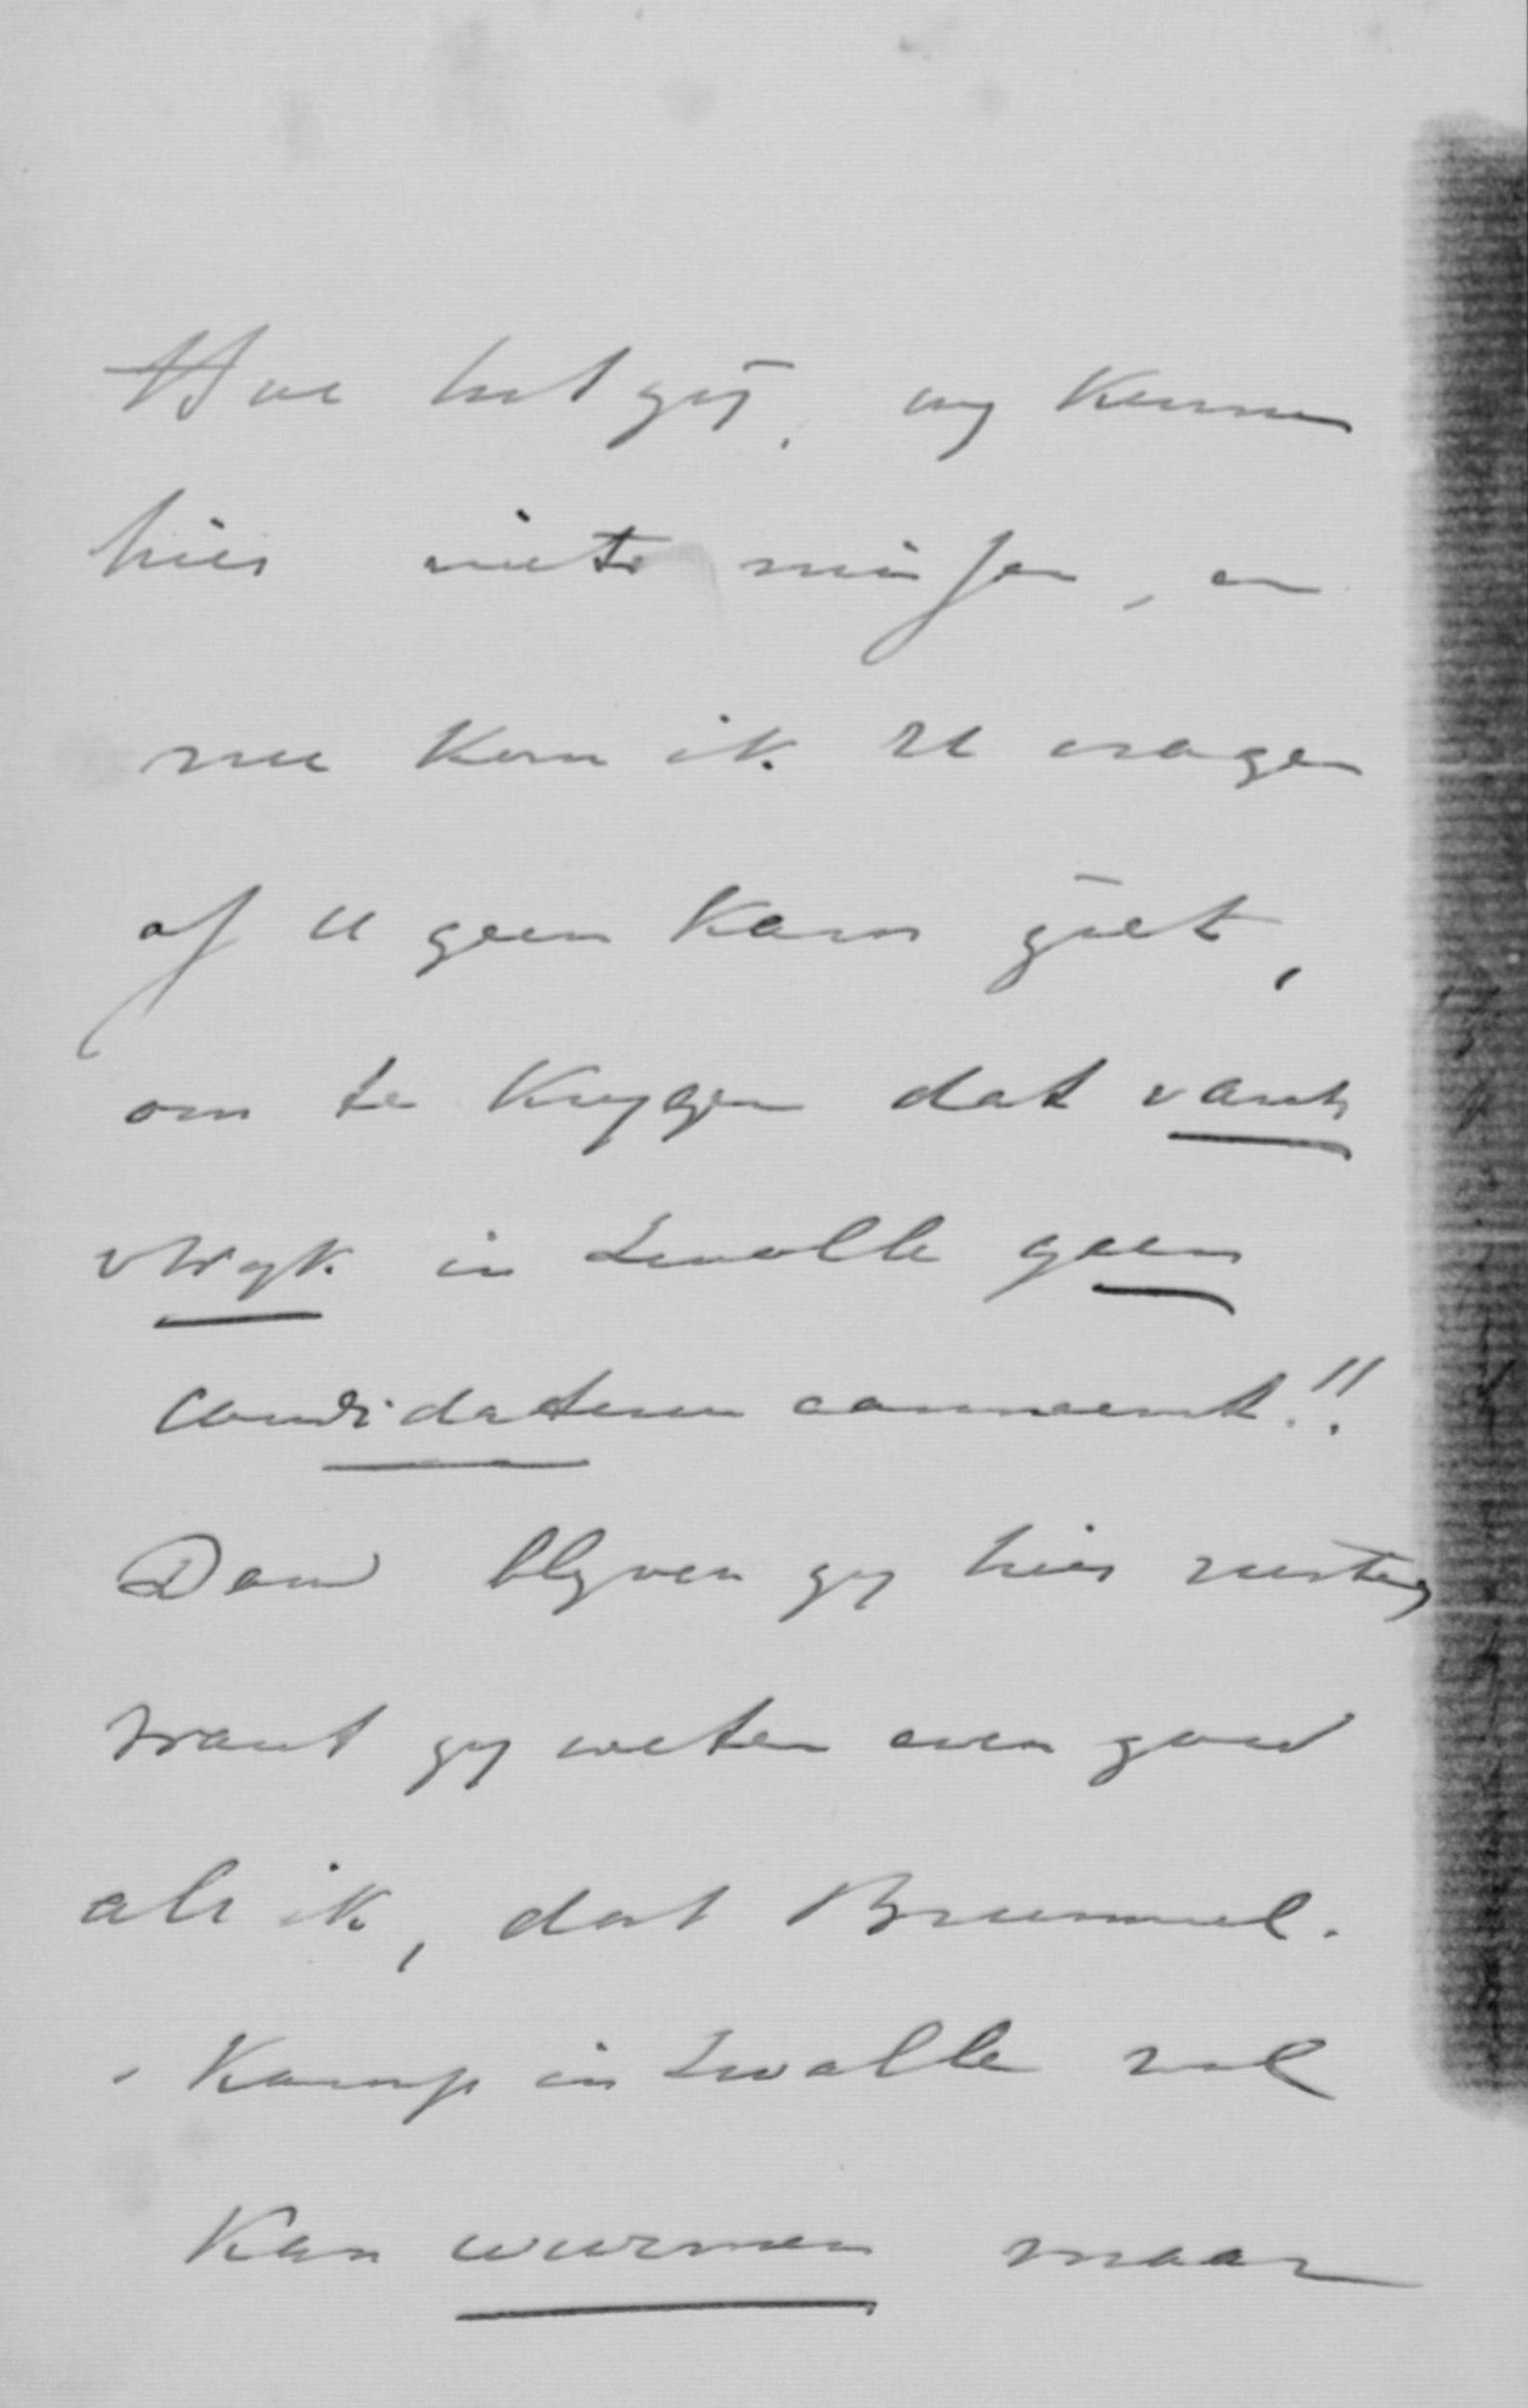 Hoe het zij, wij kunnen
hier niets missen, en
nu kom ik U vragen
of U geen kans ziet,
om te krijgen dat
vWijk in Zwolle geen
candidaturen aanneemt!!
Dan blijven zij hier rustig
want zij weten even goed
als ik, dat Brummel-
-kamp in Zwolle wel
kan winnen maar